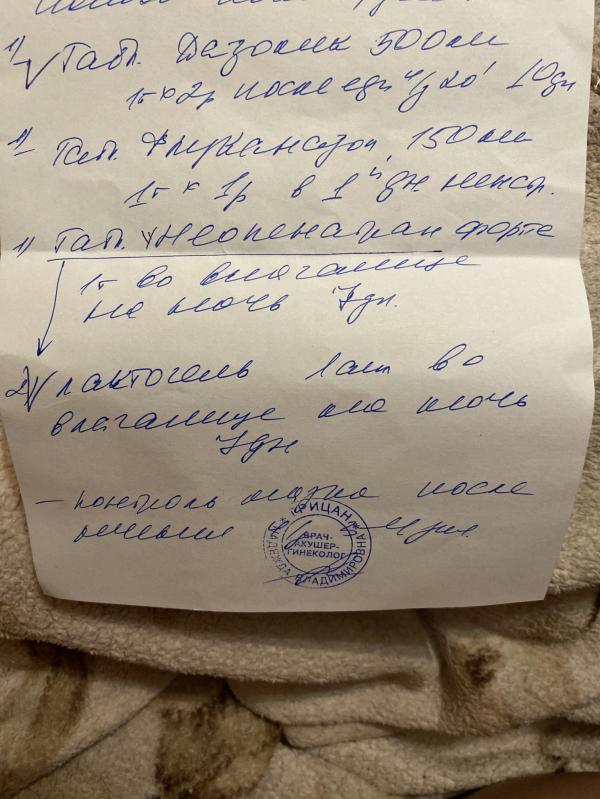 1) Таб. Дазолик 500мг
1т х 2р после еды ч/з 20' 10дн
1) Таб. Флуканазол 150мг
1т х 1р в 1й дн. менстр.
1) Таб. Неопенотран форте
1т во влагалище
на ночь 7дн.
2) лактогель 1апп во
влагалище на ночь
7дн
- контроль мазка после
лечения
ВРАЧ-
АКУШЕР-
ГИНЕКОЛОГ
НАДЕЖДА ВЛАДИМИРОВНА